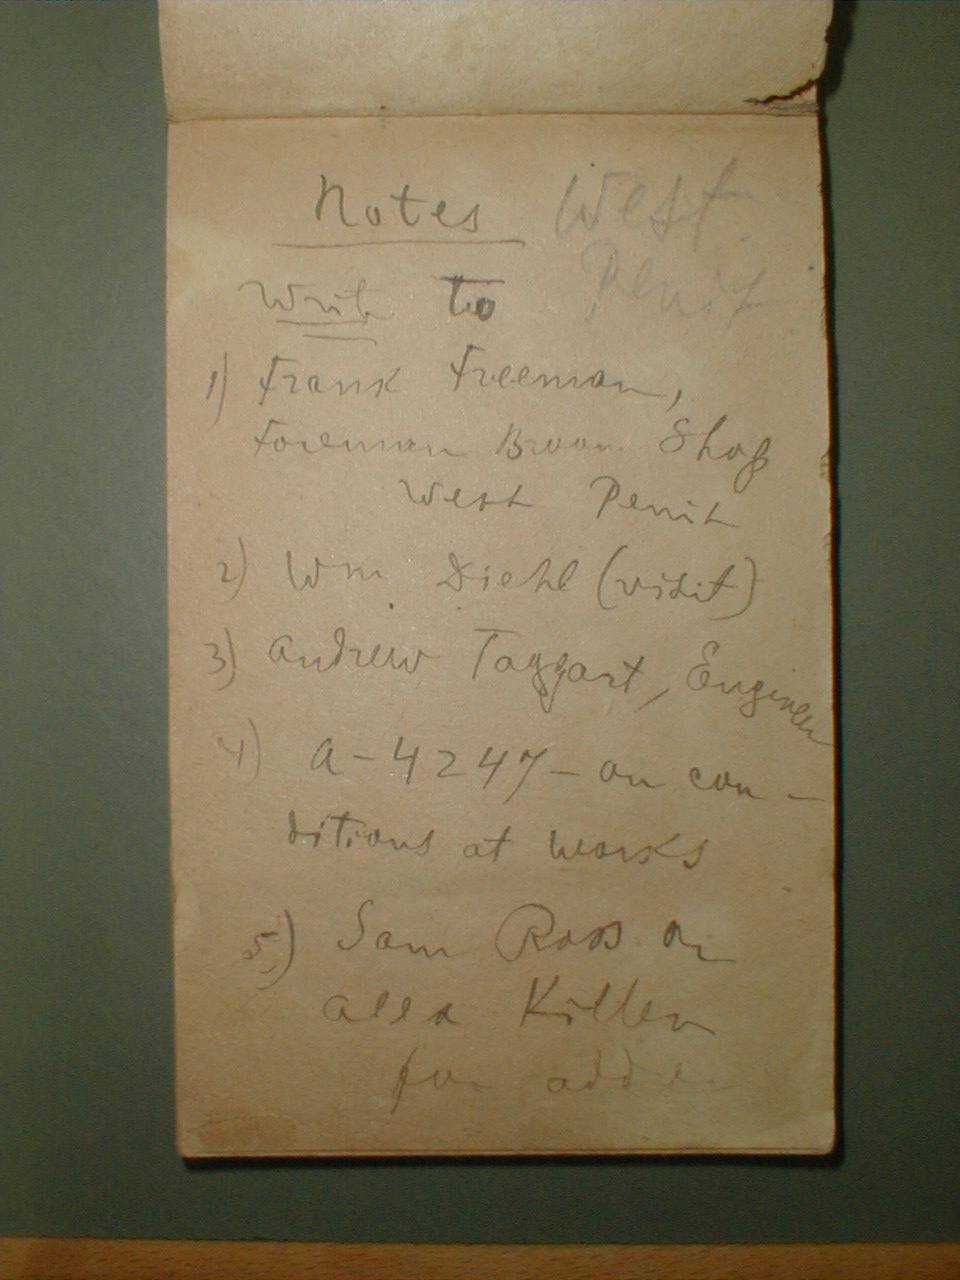 Notes West
Write to Penit
1) Frank Freeman,
Foreman Broom Shop
West Penit
2) Wm Diehl (visit)
3) Andrew Taggart, Engineer
4) A-4247 - on con -
ditions at works
5) Sam Ross or
Alex Killen
for